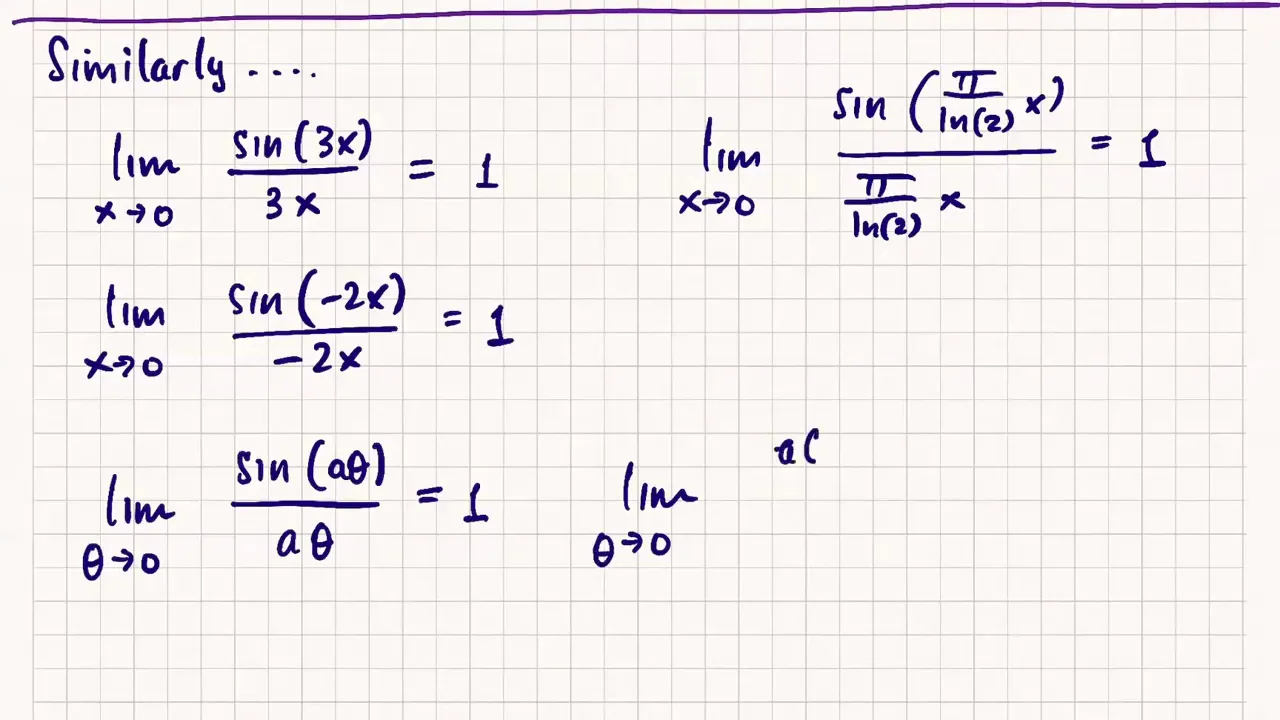 Similarly ....
lim x→0 sin(3x) / 3x = 1
lim x→0 sin(π/ln(2) x) / π/ln(2) x = 1
lim x→0 sin(-2x) / -2x = 1
lim θ→0 sin(aθ) / aθ = 1
lim θ→0 a(